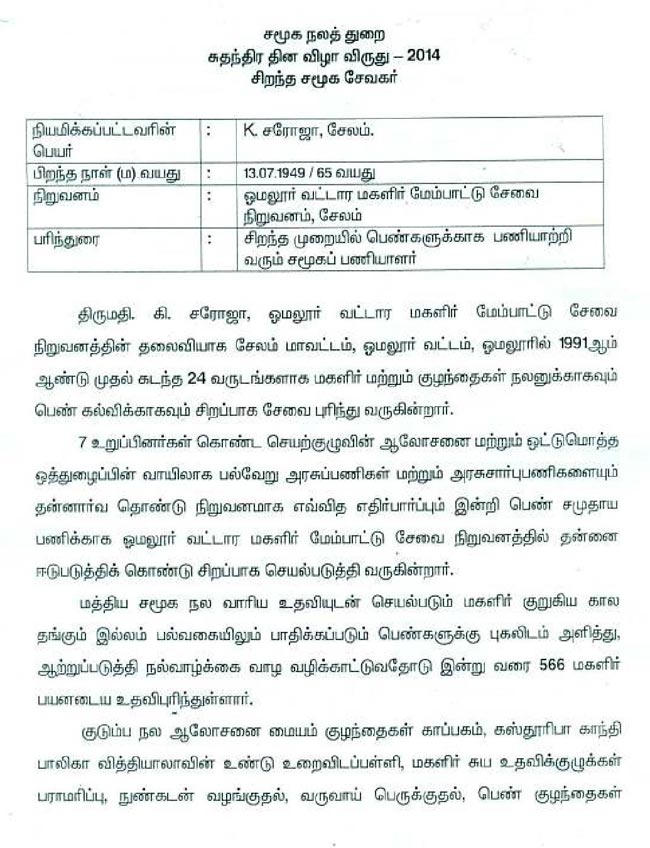 சமூக நலத் துறை
சுதந்திர தின விழா விருது – 2014
சிறந்த சமூக சேவகர்
நியமிக்கப்பட்டவரின் பெயர் : K. சரோஜா, சேலம்.
பிறந்த நாள் (ம) வயது : 13.07.1949 / 65 வயது
நிறுவனம் : ஓமலூர் வட்டார மகளிர் மேம்பாட்டு சேவை
நிறுவனம், சேலம்
பரிந்துரை : சிறந்த முறையில் பெண்களுக்காக பணியாற்றி
வரும் சமூகப் பணியாளர்
திருமதி. கி. சரோஜா, ஓமலூர் வட்டார மகளிர் மேம்பாட்டு சேவை
நிறுவனத்தின் தலைவியாக சேலம் மாவட்டம், ஓமலூர் வட்டம், ஓமலூரில் 1991ஆம்
ஆண்டு முதல் கடந்த 24 வருடங்களாக மகளிர் மற்றும் குழந்தைகள் நலனுக்காகவும்
பெண் கல்விக்காகவும் சிறப்பாக சேவை புரிந்து வருகின்றார்.
7 உறுப்பினர்கள் கொண்ட செயற்குழுவின் ஆலோசனை மற்றும் ஒட்டுமொத்த
ஒத்துழைப்பின் வாயிலாக பல்வேறு அரசுப்பணிகள் மற்றும் அரசுசார்புபணிகளையும்
தன்னார்வ தொண்டு நிறுவனமாக எவ்வித எதிர்பார்ப்பும் இன்றி பெண் சமுதாய
பணிக்காக ஓமலூர் வட்டார மகளிர் மேம்பாட்டு சேவை நிறுவனத்தில் தன்னை
ஈடுபடுத்திக் கொண்டு சிறப்பாக செயல்படுத்தி வருகின்றார்.
மத்திய சமூக நல வாரிய உதவியுடன் செயல்படும் மகளிர் குறுகிய கால
தங்கும் இல்லம் பல்வகையிலும் பாதிக்கப்படும் பெண்களுக்கு புகலிடம் அளித்து,
ஆற்றுப்படுத்தி நல்வாழ்க்கை வாழ வழிக்காட்டுவதோடு இன்று வரை 566 மகளிர்
பயனடைய உதவிபுரிந்துள்ளார்.
குடும்ப நல ஆலோசனை மையம் குழந்தைகள் காப்பகம், கஸ்தூரிபா காந்தி
பாலிகா வித்தியாலாவின் உண்டு உறைவிடப்பள்ளி, மகளிர் சுய உதவிக்குழுக்கள்
பராமரிப்பு, நுண்கடன் வழங்குதல், வருவாய் பெருக்குதல், பெண் குழந்தைகள்